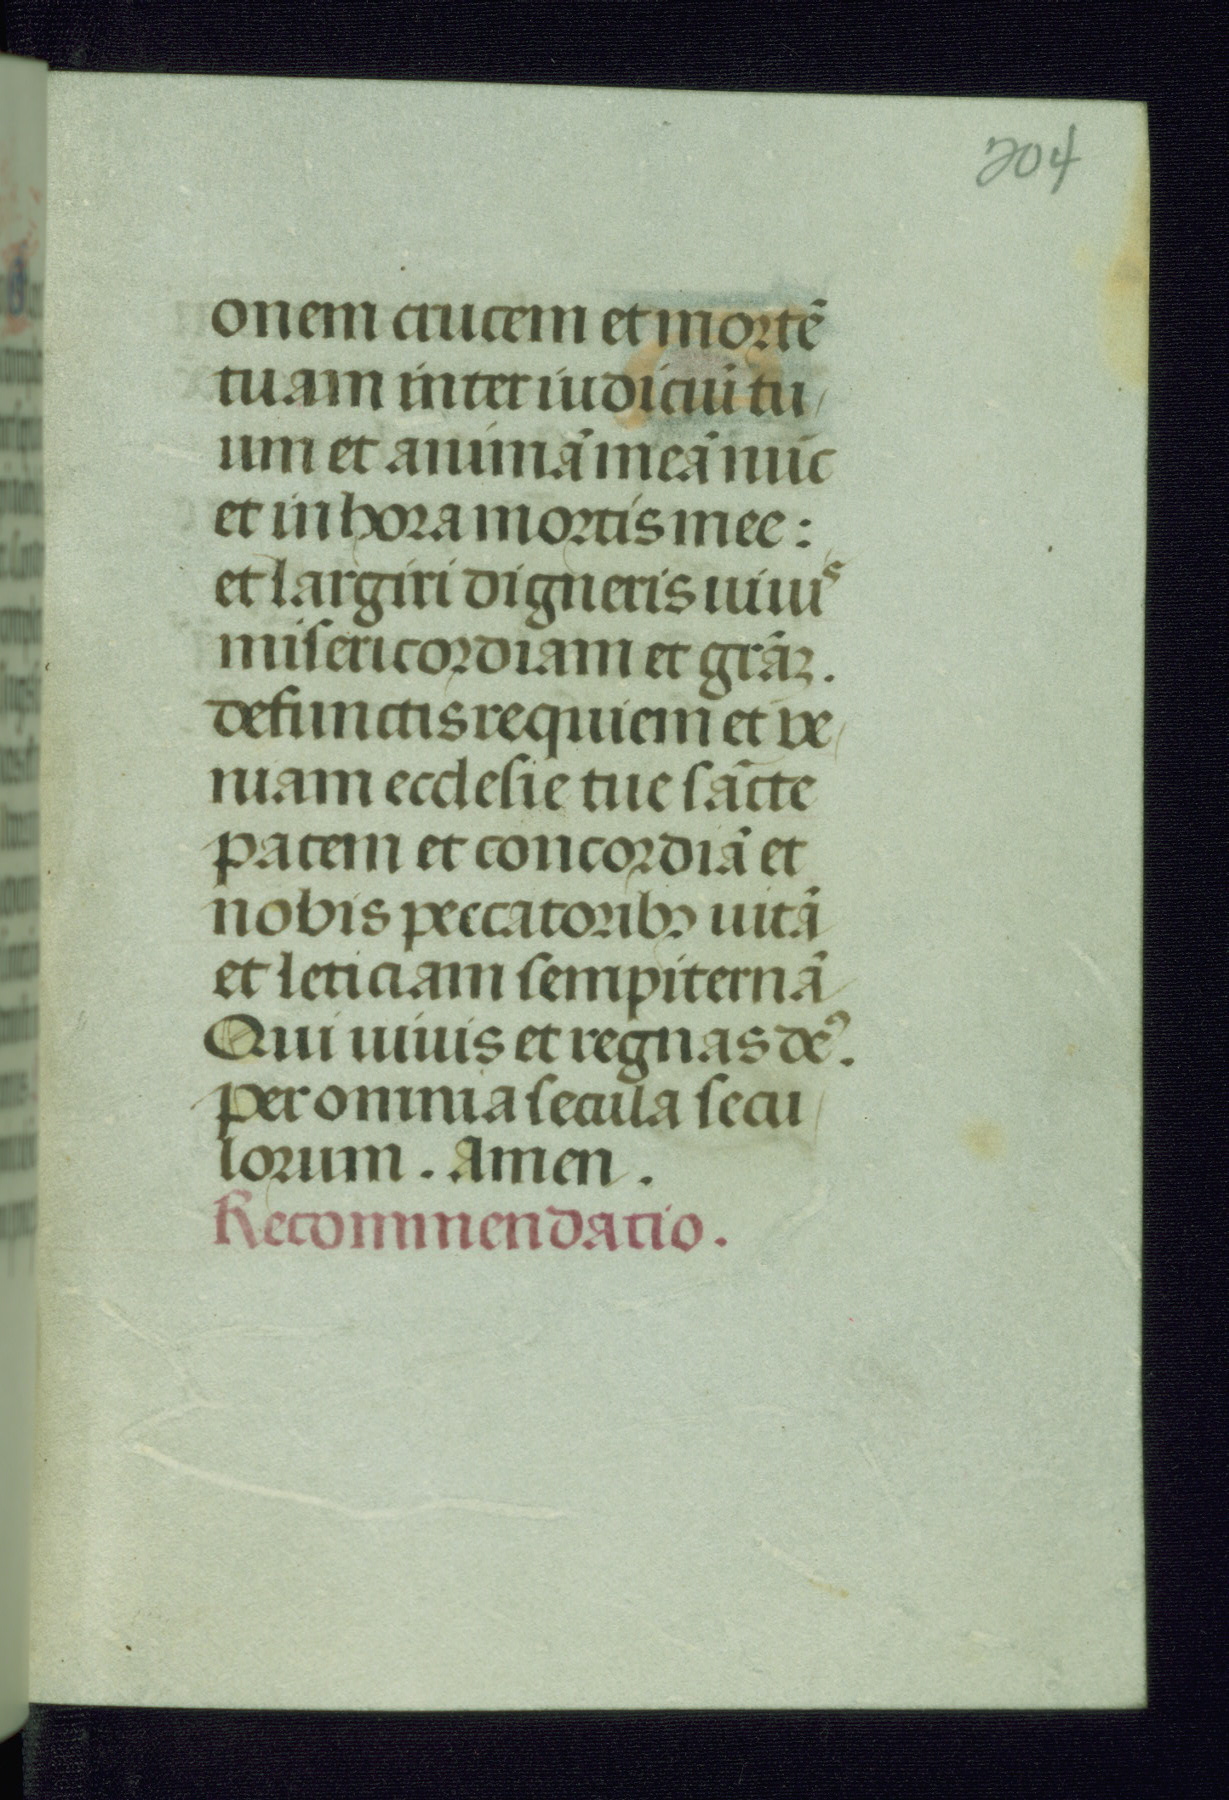 204
onem crucem et mortē
tuam inter iudiciū tu
um et animā meā nūc
et in hora mortis mee :
et largiri digneris uiuis
misericordiam et grāꝫ .
defunctis requiem et ve
niam ecclesie tue sācte
pacem et concordiā et
nobis peccatoribꝫ uitā
et leticiam sempiternā
Qui uiuis et regnas deꝰ .
per omnia secula secu
lorum . Amen .
Recommendatio .